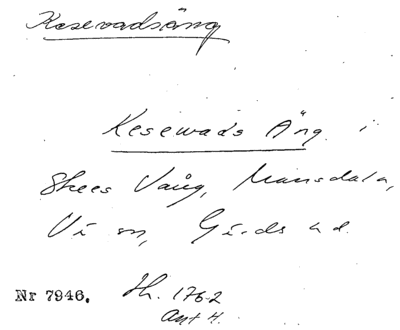 Kesevadsäng
Kesewads Äng i
Skees Vång, Mansdala,
Vi sn, Gärds hd.
Nr 7946. Jh. 1762
Ant H.